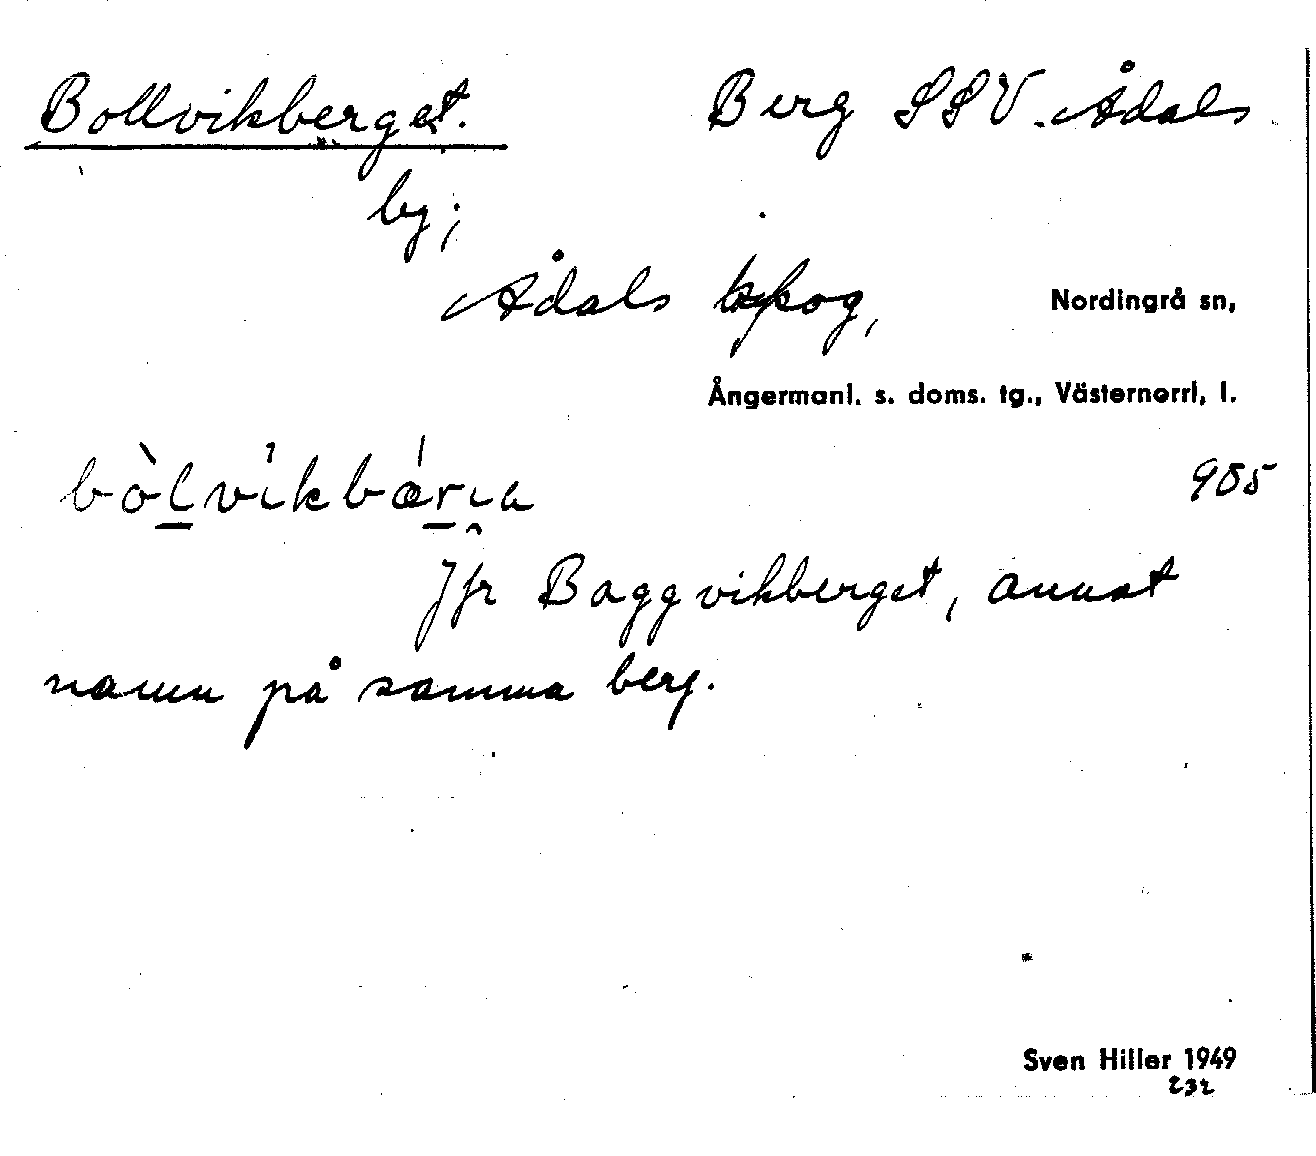 Bollvikberget. Berg SSV. Ådals
by;
Ådals skog, Nordingrå sn,
Ångermanl. s. doms. tg., Västernorrl, l.
bòlvikbǽrıa 905
Jfr Baggvikberget, annat
namn på samma berg.
Sven Hiller 1949
232